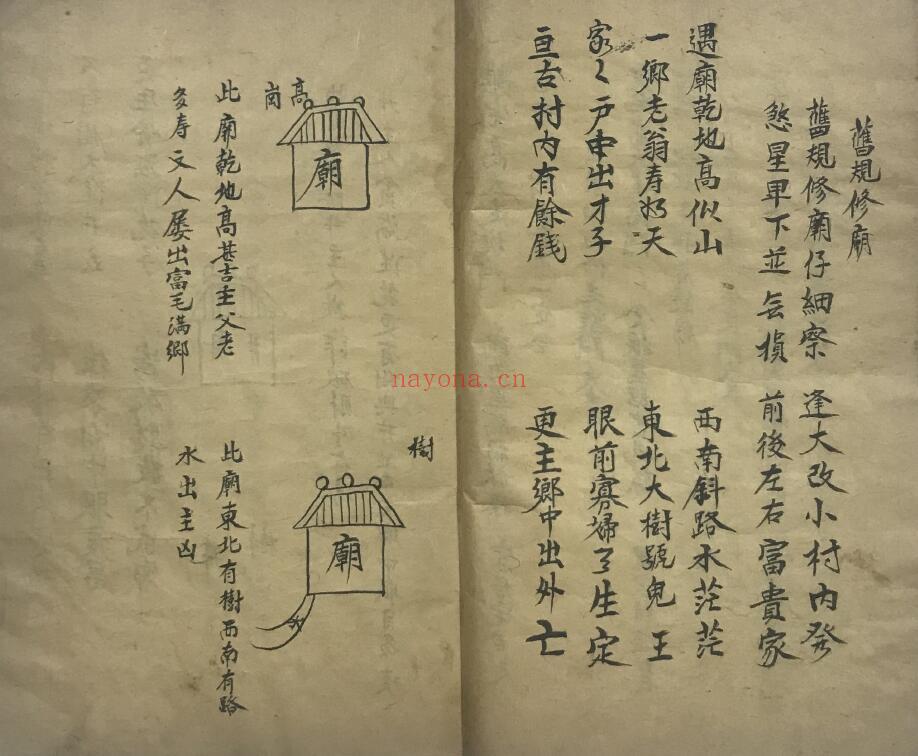 舊規修廟
舊規修廟仔細察 逢大改小村內發
煞星卑下並無損 前後左右富貴家
遇廟乾地高似山 西南斜路水茫茫
一鄉老翁壽如天 東北大樹號鬼王
家〻戶出才子 眼前寡婦了生定
亘古村內有餘錢 更主鄉中出外亡
高崗
廟
此廟乾地高甚吉主父老
多壽文人屡出富毛滿鄉
樹
廟
水
此廟東北有樹西南有路
水出主凶
nayona.cn